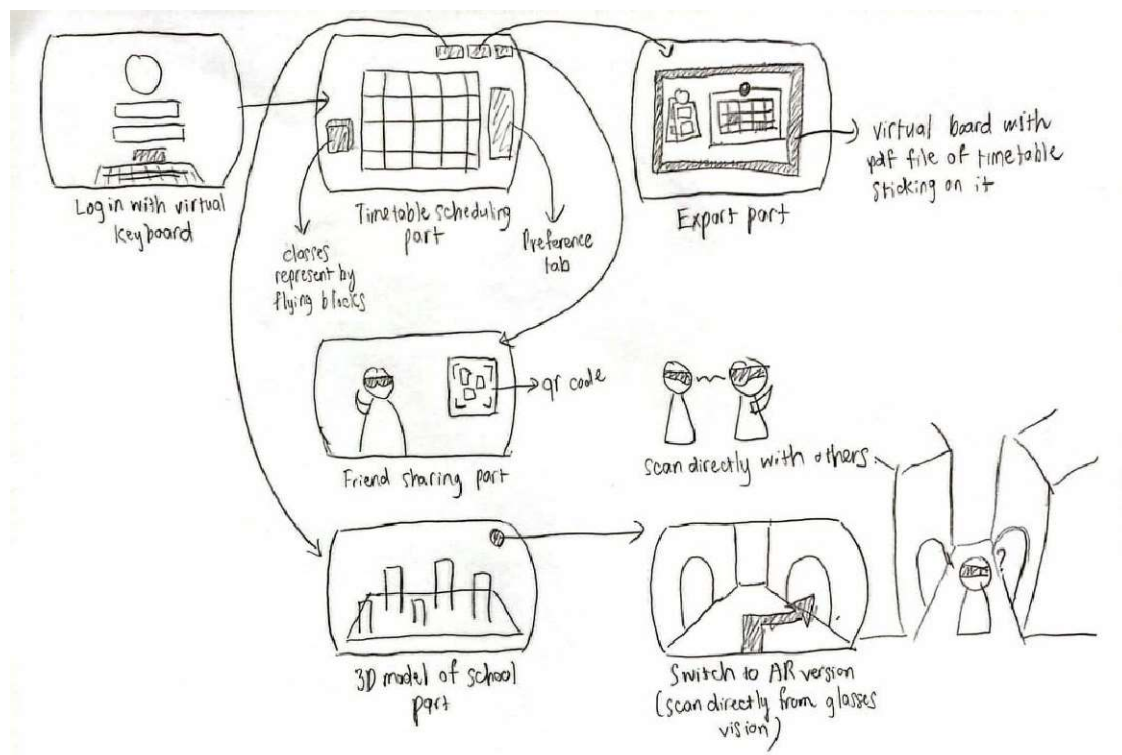 Login with virtual
keyboard
Timetable scheduling
part
classes
represent by
flying blocks
Preference
tab
Export part
virtual board with
pdf file of timetable
sticking on it
Friend sharing part
qr code
scan directly with others
?
3D model of school
part
Switch to AR version
(scan directly from glasses
vision)